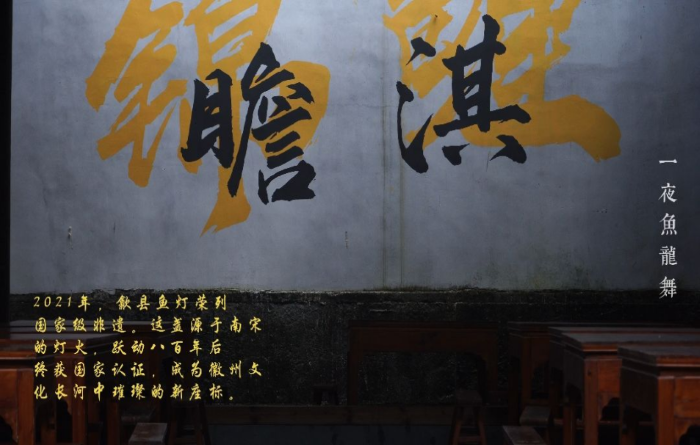 瞻淇
一夜魚龍舞
2021年，歙县鱼灯荣列
国家级非遗。这盏源于南宋
的灯火，跃动八百年后
终获国家认证，成为徽州文
化长河中璀璨的新座标。